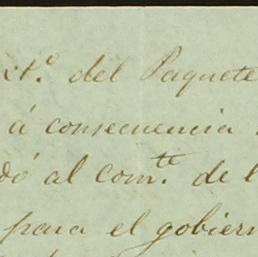 xtº. del Paquete
á consecuencia
dó al comte. de l
para el gobiern